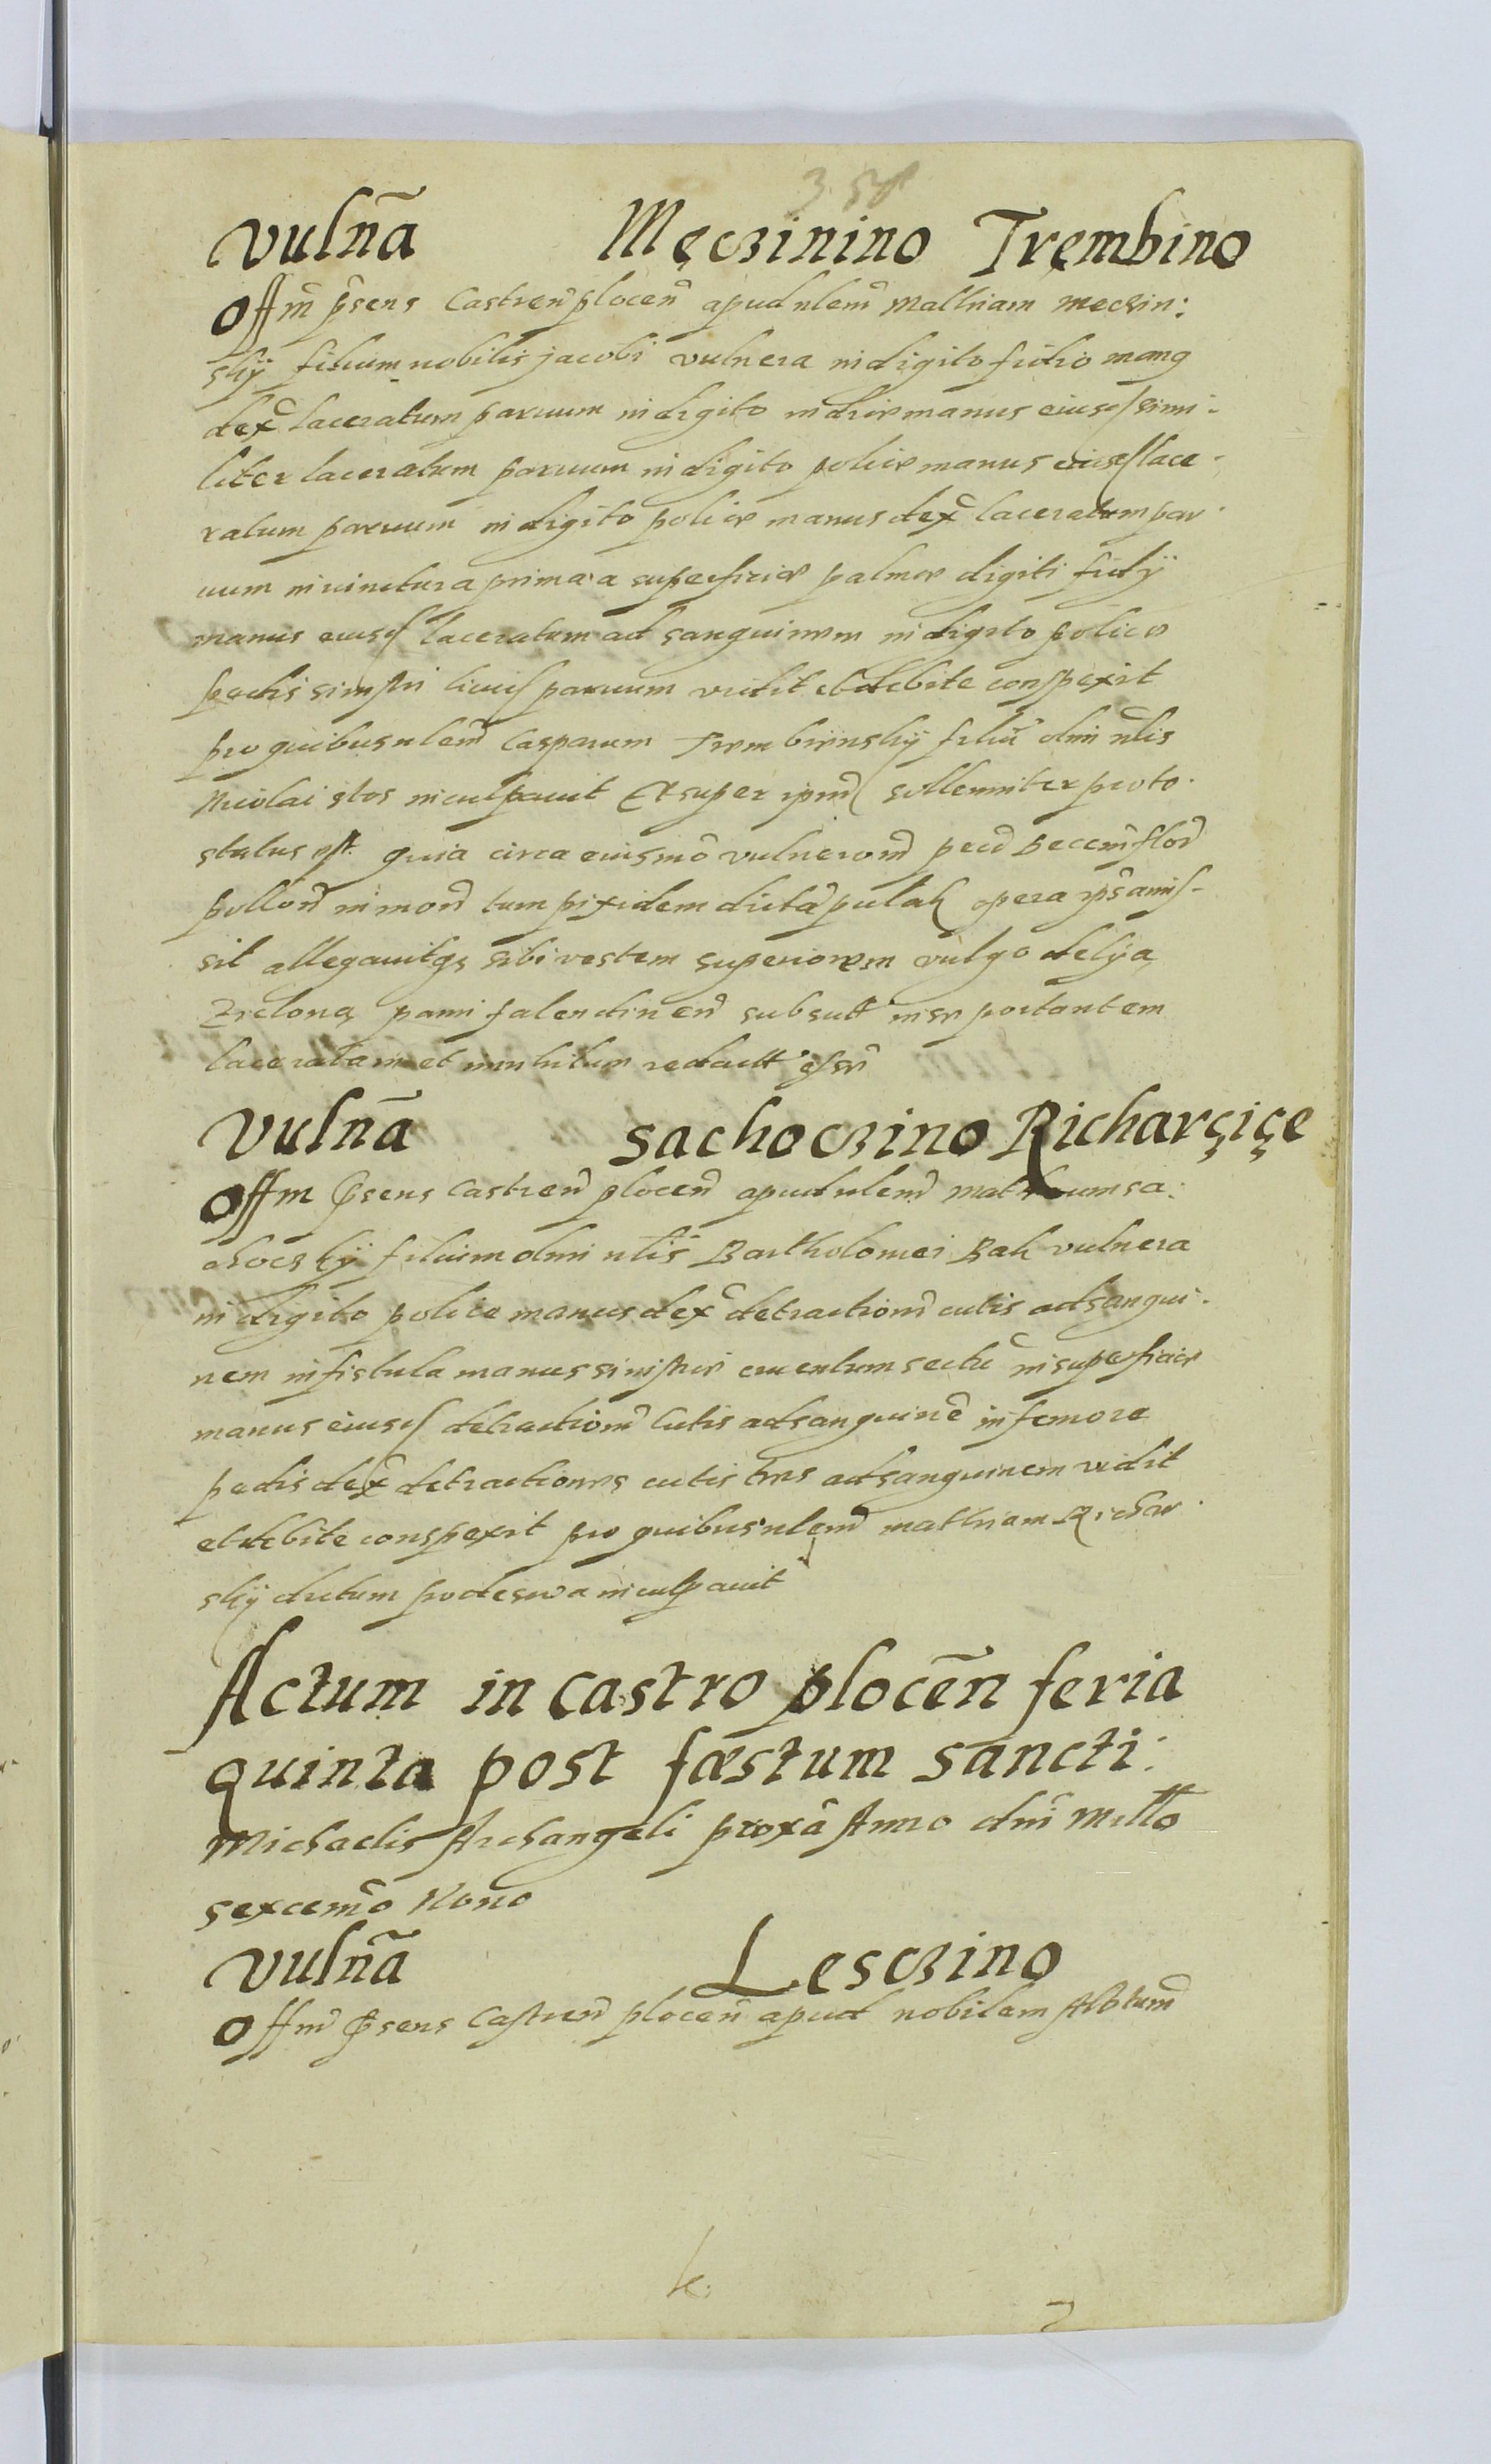 vulña Męczinino Trembino
Offm̃ p̃sens Castreñ ploceñ apud nlem̃ Mathiam meczin:
skÿ filium nobilis jacobi vulnera in digito fidio
dex̃ laceratum paruum in digito manus eiusd simi-
liter laceratum paruum in digito police manus eiusd lace-
ratum paruum in digito police manus dex̃ laceratum par-
uum in iunctura prima a superficie palmae digiti
manus eiusd laceratum ad sanguinem in digito police
pedis sinistri liuid paruum vidit et debite conspexit
pro quibus nlem̃ Casparum Trembinskÿ filiũ olim ñlis
Nicolai inculpauit Et super sollenniter proto-
status est quia circa eiusmõ vulneroñ
in moñ tum pixidem dictã opera ip̃s amis-
sit allegauitq; sibi vestem superiorem vulgo delÿa
zielona falendineñ in se portantem
laceratam et
vulña sachoczino Richarçiçe
Offm p̃sens Castreñ ploceñ apud nlem̃ sa:
chocskÿ filium olim nlĩs Bartholomei Bak vulnera
in digito police manus dex̃ detractionẽ cutis ad sangui-
nem in fistula manus sinistre cruentum sectũ in superficie
manus eiusd detractionẽ Cutis ad sanguinẽ in femore
pedis dex̃ detractiones cutis tres ad sanguinem vidit
et debite conspexit pro quibus nlem̃ mathiam Richar-
skÿ dictum podeswa inculpauit
Actum in castro plocẽn feria
quinta post fæstum sancti:
Michaelis Archangeli proxã Anno dñi Millo
sexcem̃o Nono
vulña Lesczino
Offm̃ p̃sens Castreñ ploceñ apud nobilem